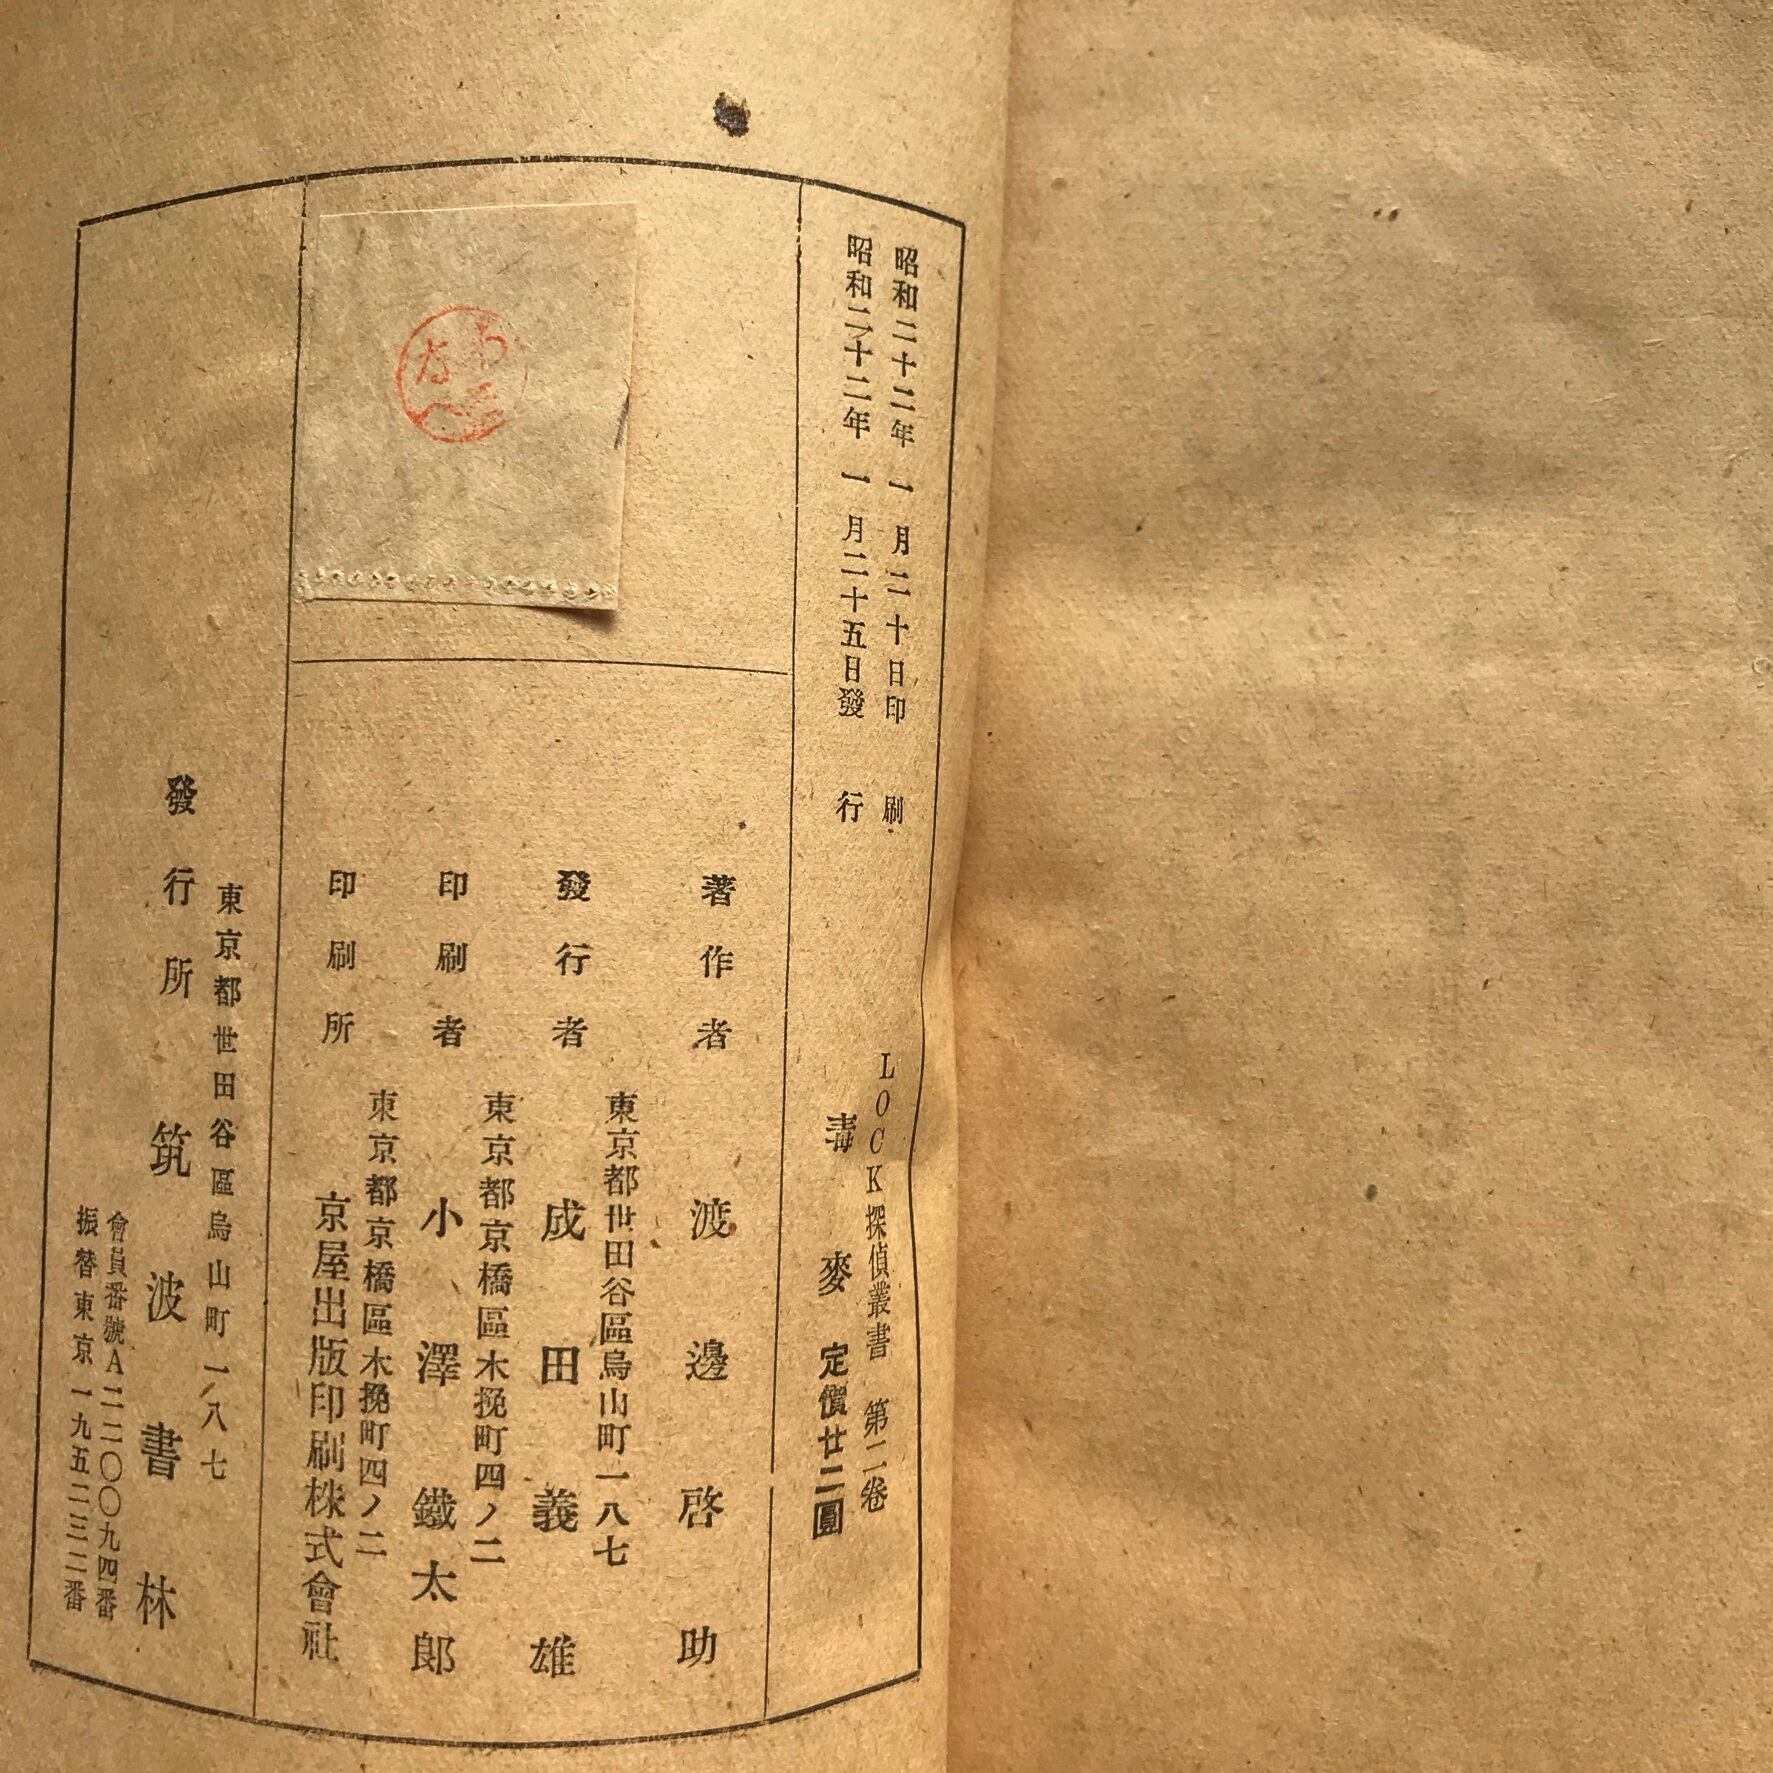 昭和二十二年一月二十日印刷
昭和二十二年一月二十五日發行
LOCK探偵叢書 第二卷
毒麥 定價廿二圓
著作者 渡邊啓助
東京都世田谷區烏山町一八七
發行者 成田義雄
東京都京橋區木挽町四ノ二
印刷者 小澤鐵太郎
東京都京橋區木挽町四ノ二
印刷所 京屋出版印刷株式會社
東京都世田谷區烏山町一八七
發行所 筑波書林
會員番號A二二〇〇九四番
振替東京一九五二三二番
わたなべ